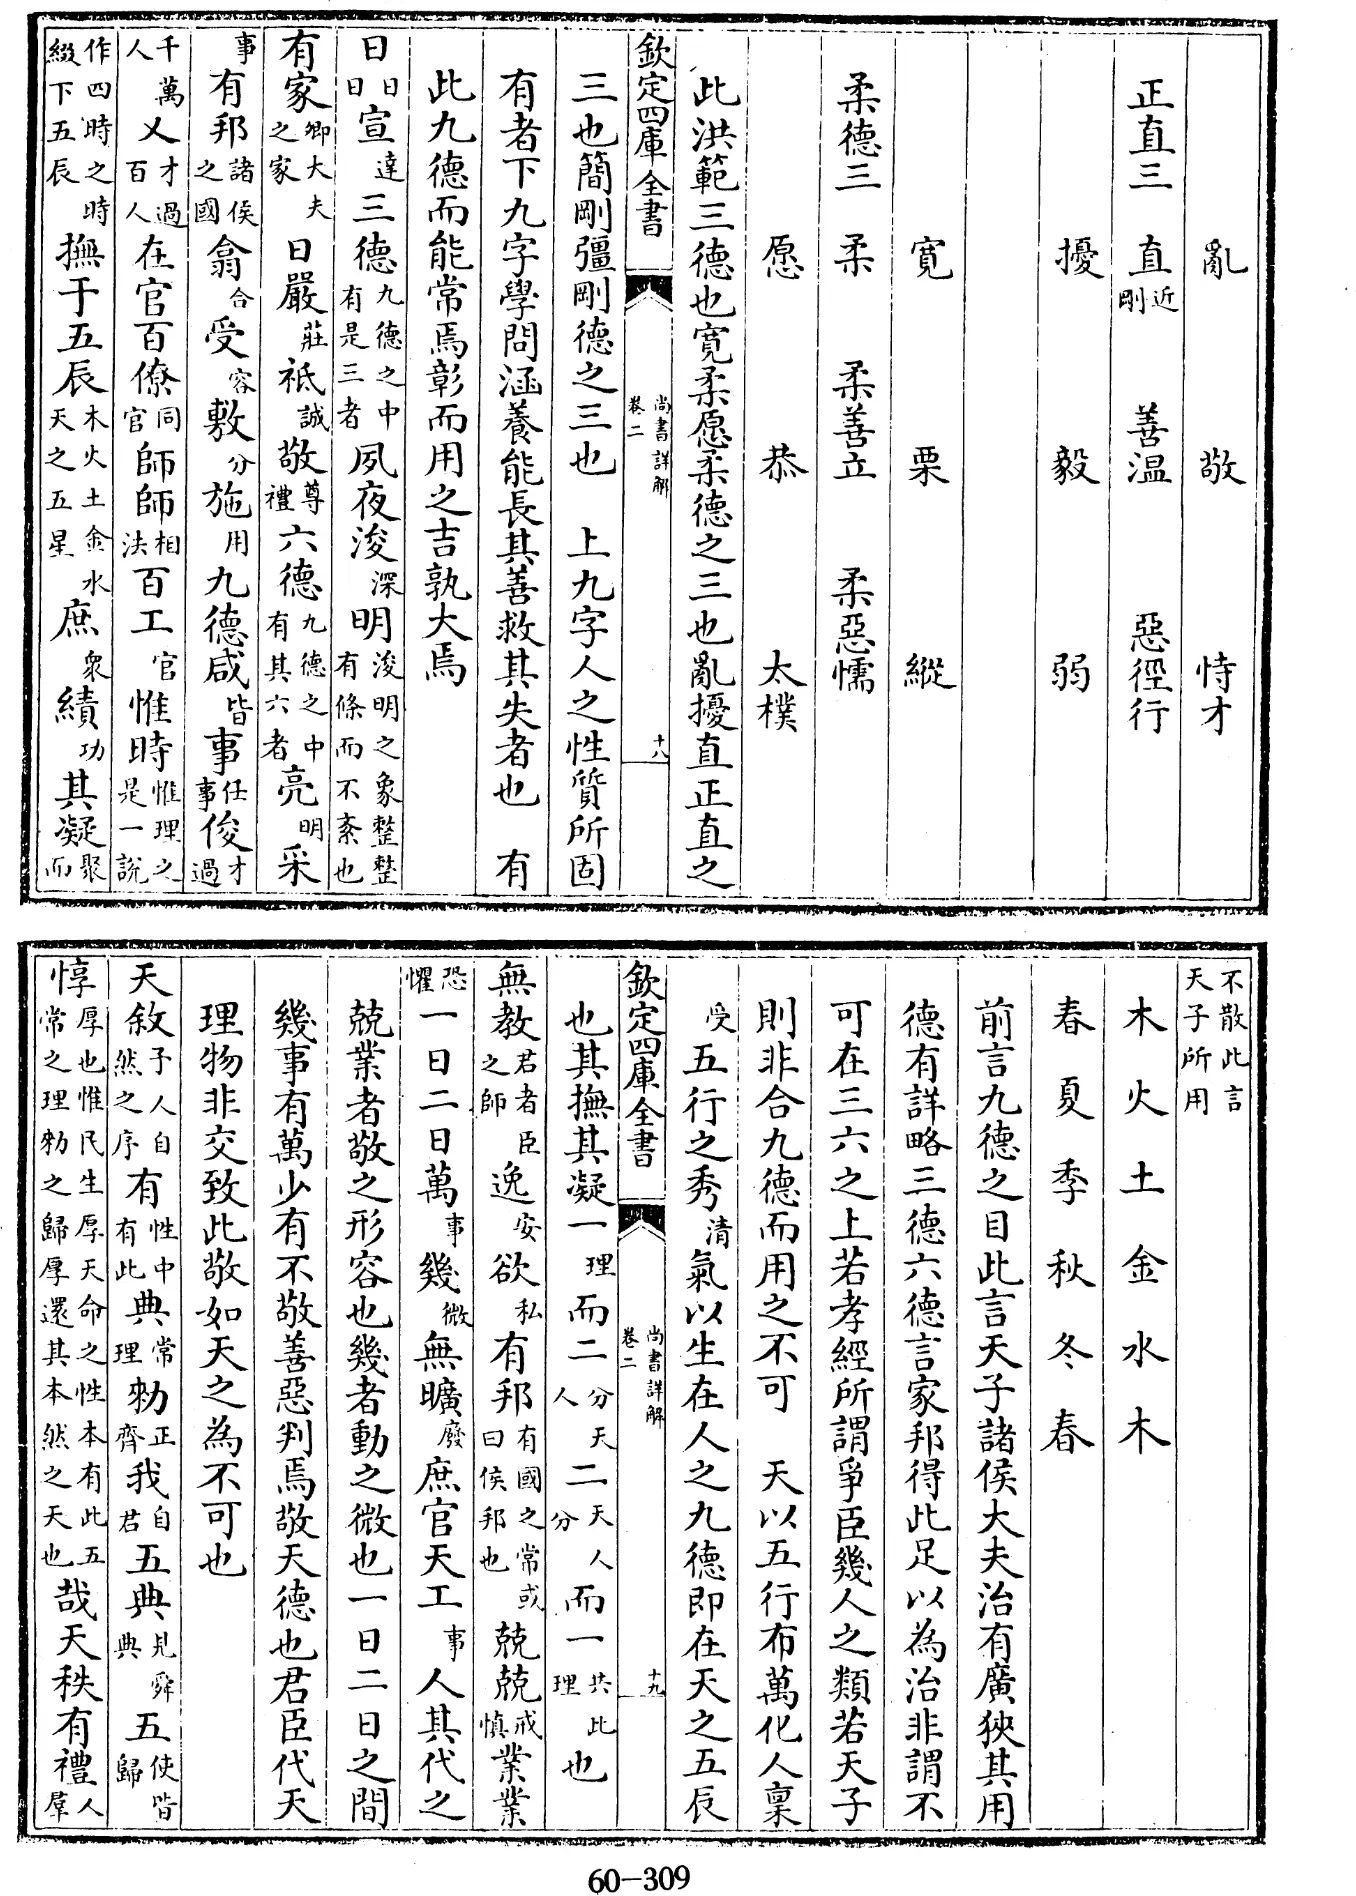 亂　敬　恃才
正直三　直近剛　善溫　惡徑行
擾　毅　弱
寬　栗　縱
柔德三　柔　柔善立　柔惡懦
愿　恭　太樸
此洪範三德也寛柔愿柔德之三也亂擾直正直之
欽定四庫全書　尚書詳解卷二　十八
三也簡剛彊剛德之三也　上九字人之性質所固
有者下九字學問涵養能長其善救其失者也　有
此九德而能常焉彰而用之吉孰大焉
日日日宣達三德九德之中有是三者夙夜浚深明浚明之象整整有條而不紊也
有家卿大夫之家日嚴莊祗誠敬尊禮六德九德之中有其六者亮明采
事有邦諸侯之國翕合受容敷分施用九德咸皆事任事俊才過
千萬人乂才過百人在官百僚同官師師相法百工官惟時惟理之是一說
作四時之時綴下五辰撫于五辰木火土金水天之五星庶衆績功其凝聚而
不散此言天子所用
木火土金水木
春夏季秋冬春
前言九德之目此言天子諸侯大夫治有廣狹其用
德有詳略三德六德言家邦得此足以為治非謂不
可在三六之上若孝經所謂爭臣幾人之類若天子
則非合九德而用之不可　天以五行布萬化人稟
受五行之秀清氣以生在人之九德即在天之五辰
欽定四庫全書　尚書詳解卷二　十九
也其撫其凝一理而二分天人二天人分而一共此理也
無教君者臣之師逸安欲私有邦有國之常或曰侯邦也兢兢戒慎業業
恐懼一日二日萬事幾微無曠廢庶官天工事人其代之
兢業者敬之形容也幾者動之微也一日二日之間
幾事有萬少有不敬善惡判焉敬天德也君臣代天
理物非交致此敬如天之為不可也
天敘予人自然之序有性中有此典常理勑正齊我自君五典見舜典五使皆歸
惇厚也惟民生厚天命之性本有此五常之理勑之歸厚還其本然之天也哉天秩有禮人羣
60-309